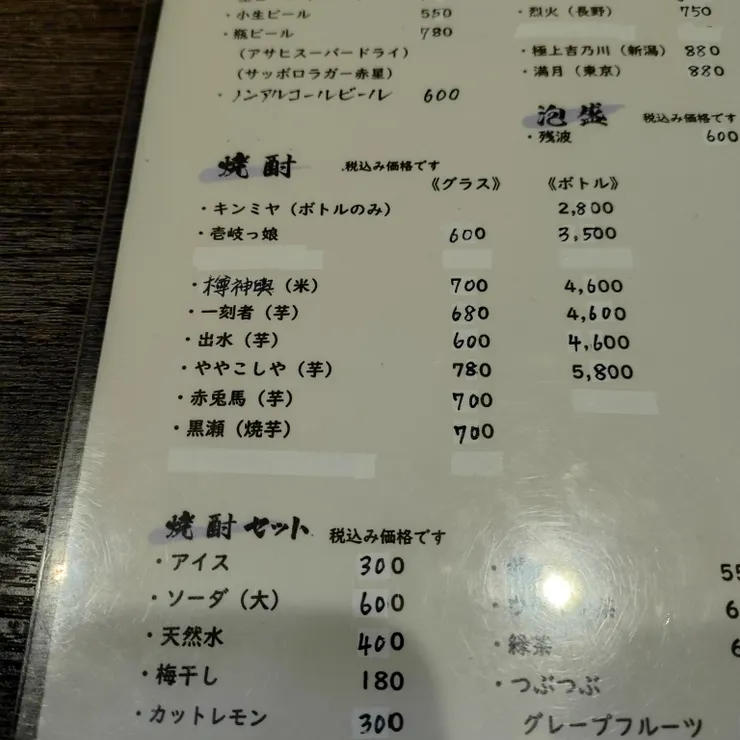 ・小生ビール 550
・瓶ビール 780
（アサヒスーパードライ）
（サッポロラガー赤星）
・ノンアルコールビール 600
・烈火（長野） 750
・極上吉乃川（新潟） 880
・満月（東京） 880
泡盛 税込み価格です
・残波 600
焼酎 税込み価格です
《グラス》 《ボトル》
・キンミヤ（ボトルのみ） 2,800
・壱岐っ娘 600 3,500
・樽神輿（米） 700 4,600
・一刻者（芋） 680 4,600
・出水（芋） 600 4,600
・ややこしや（芋） 780 5,800
・赤兎馬（芋） 700
・黒瀬（焼芋） 700
焼酎セット 税込み価格です
・アイス 300
・ソーダ（大） 600
・天然水 400
・梅干し 180
・カットレモン 300
・緑茶
・つぶつぶ
グレープフルーツ